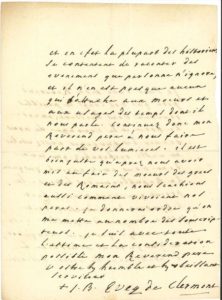 et en efet la plupart des historiens
se contentent de raconter des
evenemens que personne n'ignore,
et il n'en est presque aucun
qui s'attache aux moeurs et
aux usages du temps dont il
nous parle continuez donc mon
Reverend pere a nous faire
part de vos lumieres. il est
bien juste qu'apres nous avoir
mis en fait des moeurs des grecs
et des Romains, nous sachions
aussi comme vivoient nos
peres. je donneray ordre qu'on
me mette au nombre des souscrip-
teurs. je suis avec toute
l'estime et la consideration
possible mon Reverend pere
votre tres humble et tres obeissant
serviteur
+ J. B. Eveq. de Clermont